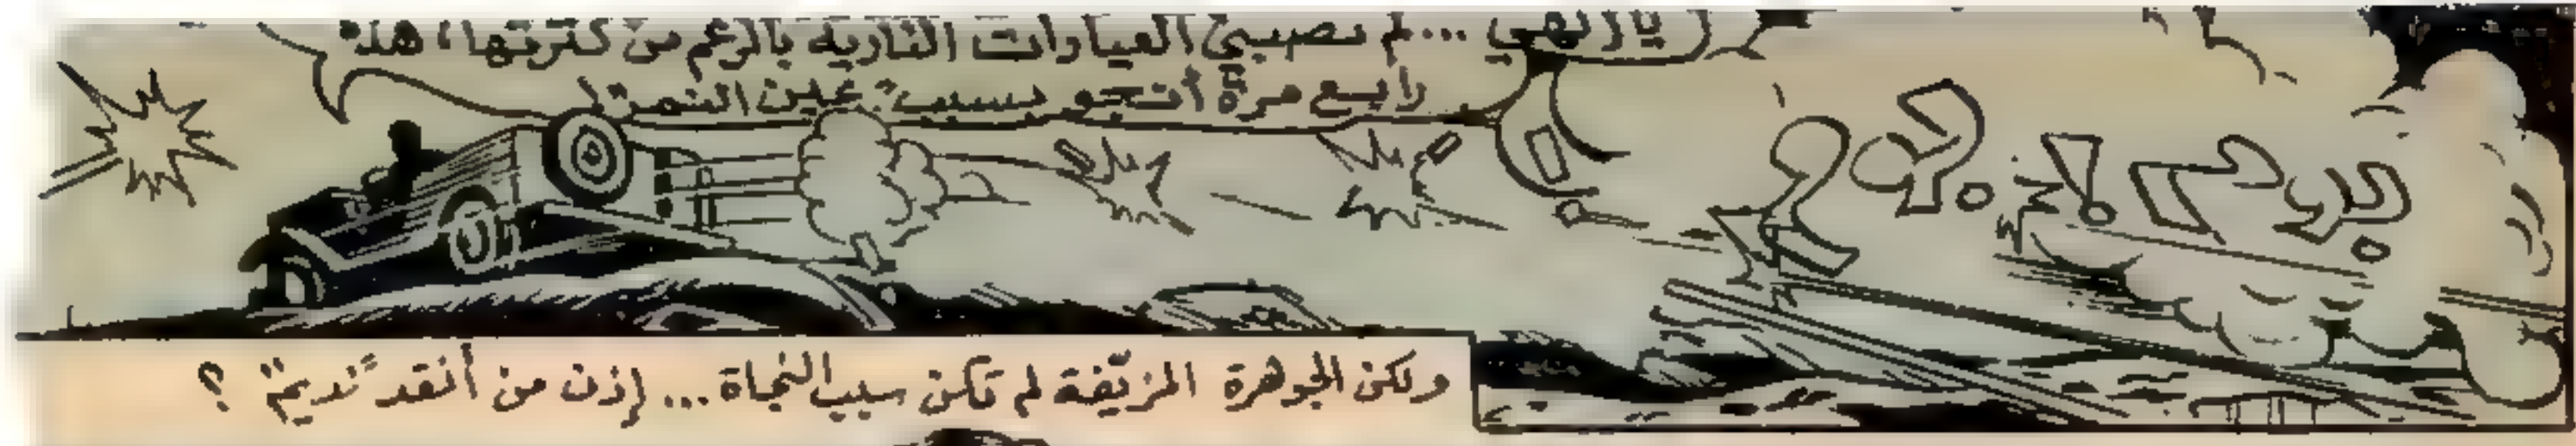 يا إلهي ... لم تصبني العيارات النارية بالرغم من كثرتها، هذه
رابع مرة أنجو بسبب "عين النمر"!
ولكن الجوهرة المزيّفة لم تكن سبب النجاة ... إذن من أنقد "نديم" ؟